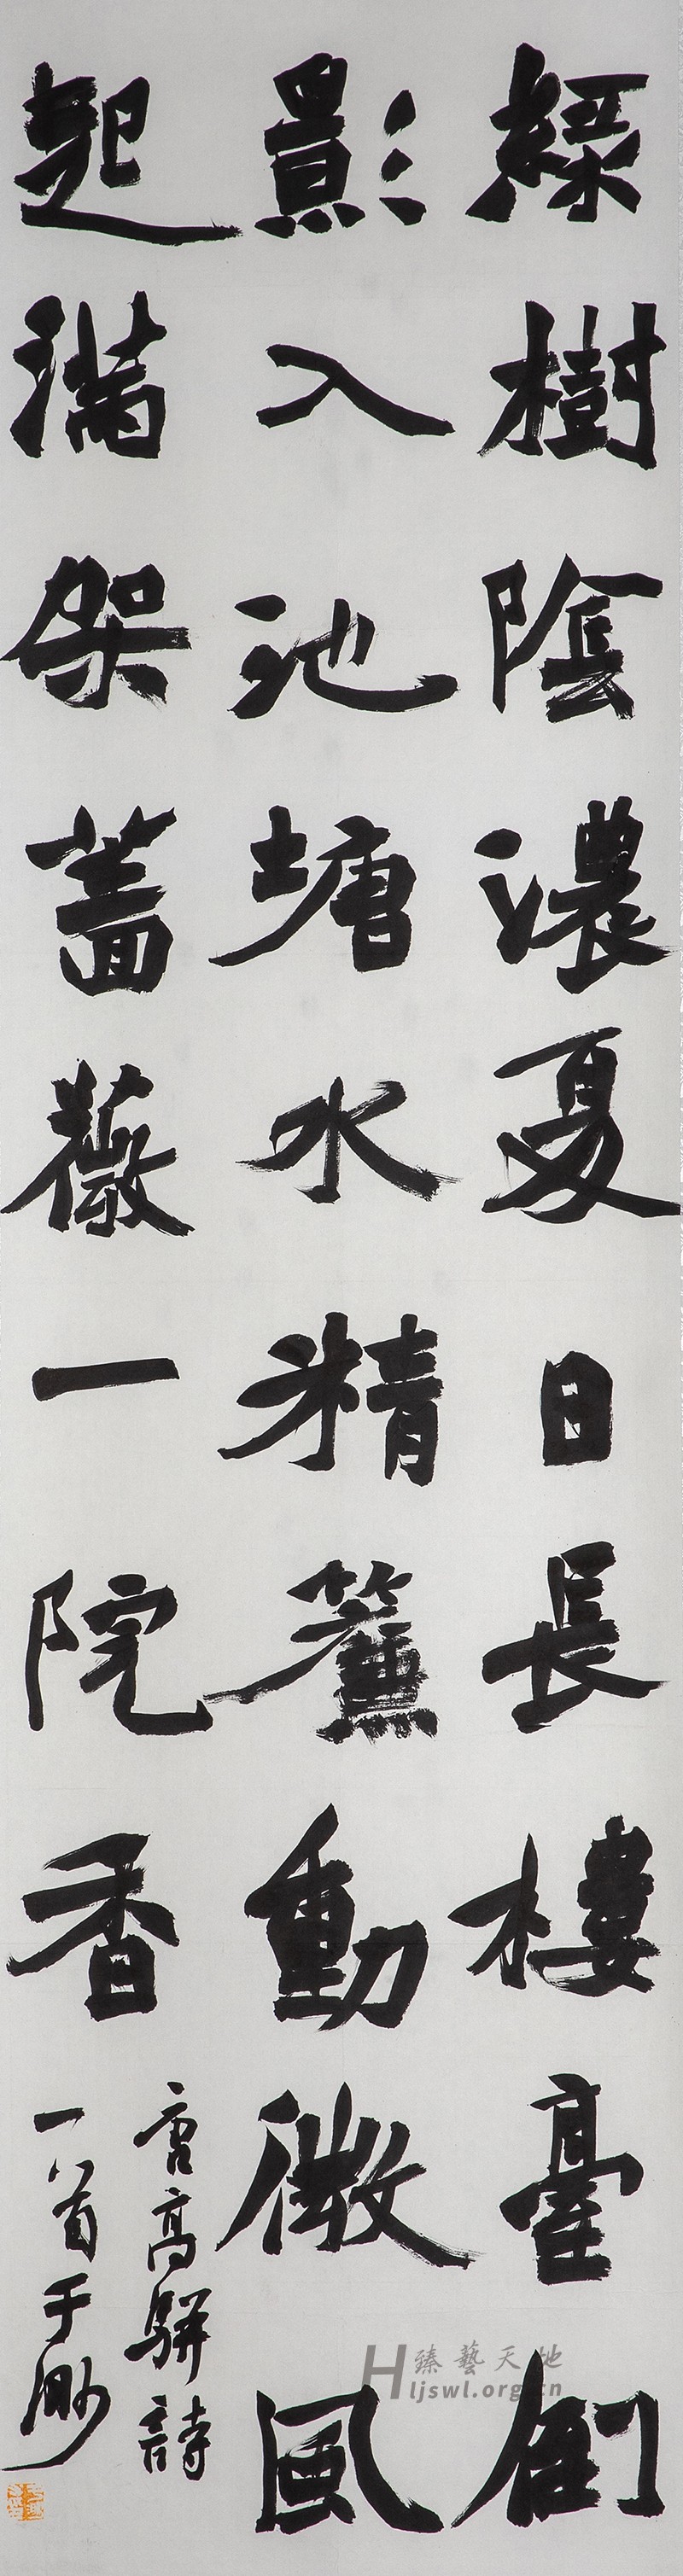 綠樹陰濃夏日長樓臺倒
影入池塘水精簾動微風
起滿架薔薇一院香
唐高駢詩
一首于
臻藝天地
ljswl.org.cn